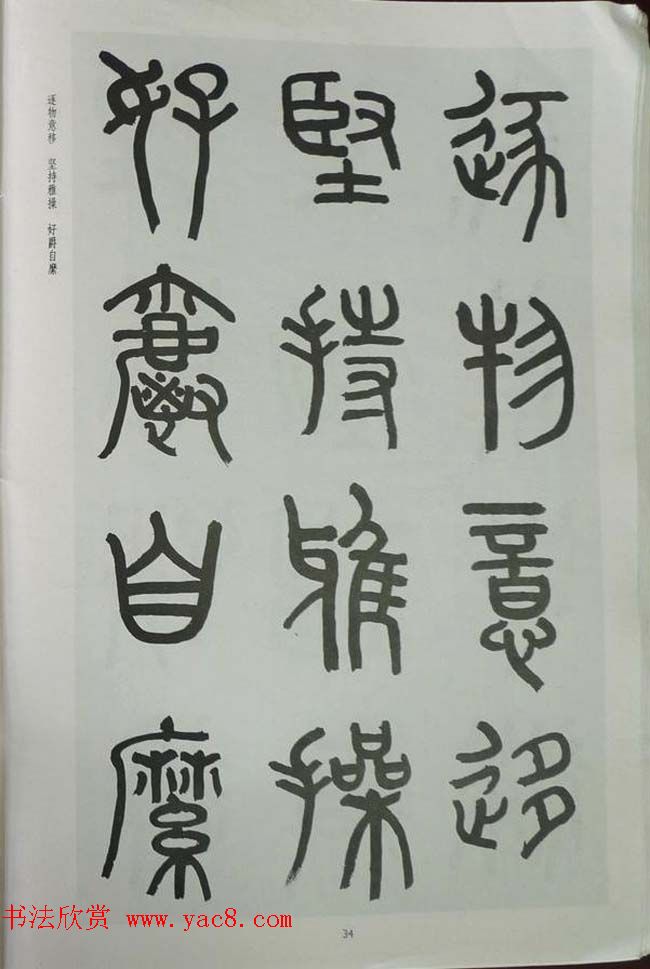 逐物意移
堅持雅操
好爵自縻
逐物意移 坚持雅操 好爵自縻
书法欣赏 www.yac8.com
34